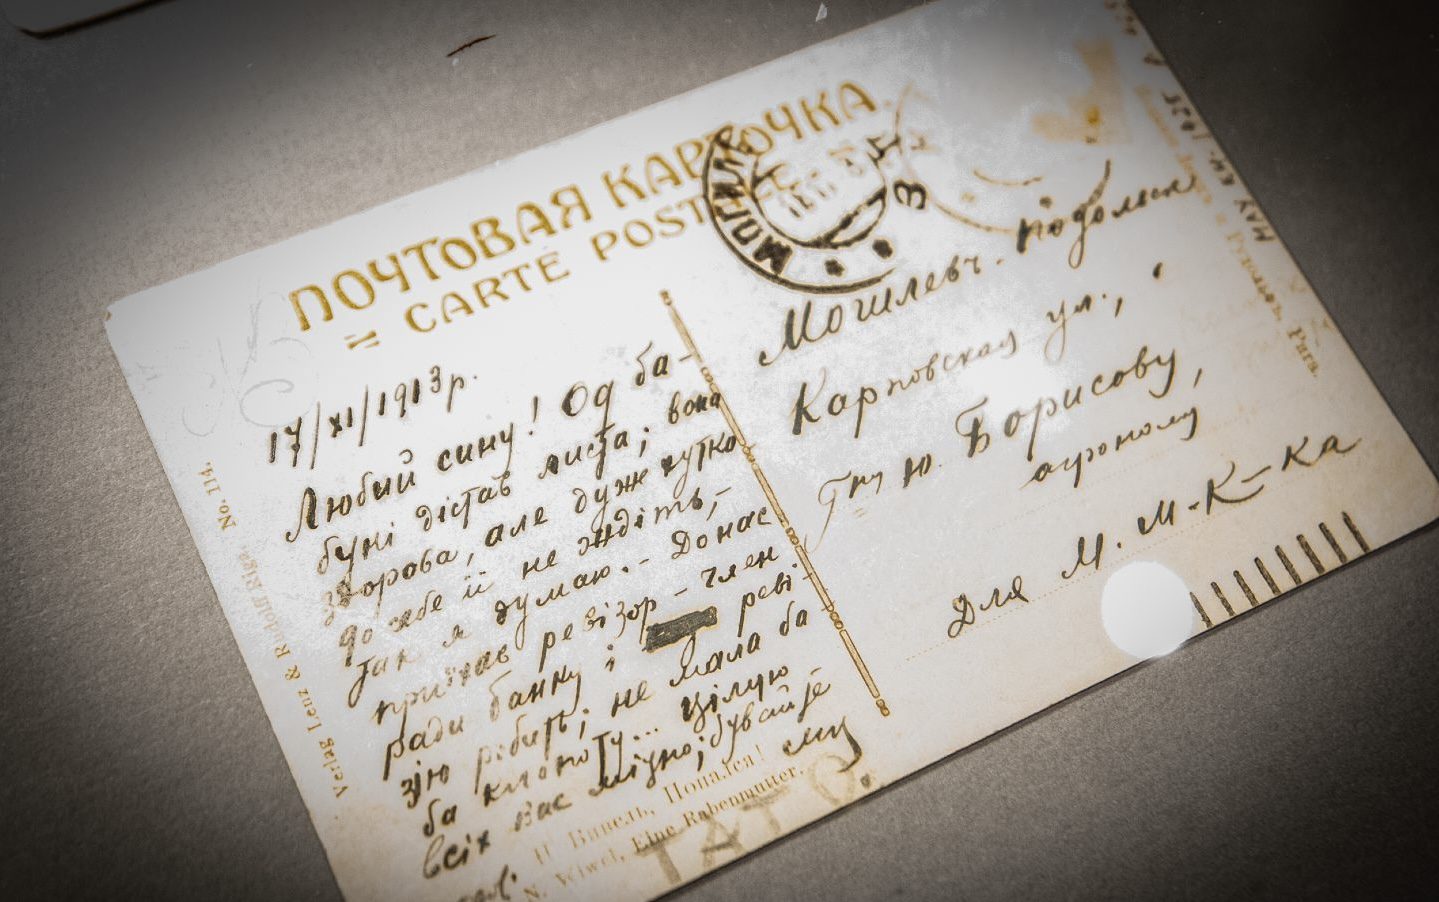 ПОЧТОВАЯ КАРТОЧКА.
CARTE POSTALE
МОГИЛЕВ
17/XI/1913р.
Любий сину! Од ба-
буні дістав листа; вона
здорова, але дуже хутко
до себе її не ждіть,-
так я думаю.- До нас
приїхав ревізор - член
ради банку і реві-
зію робить; не мала ба
ба клопоту... цілую
всіх вас міцно; бувайте
ми
ТАТО.
Могилевъ-Подольск
Карповская ул.,
Г-ну Ю. Борисову,
агроному
Для М. М-К-ка
No. 114.
Verlag Leuz & Rudolff Riga.
Н Вивель, Попалса!
N. Wiwel, Eine Rabenmutter.
Рига.